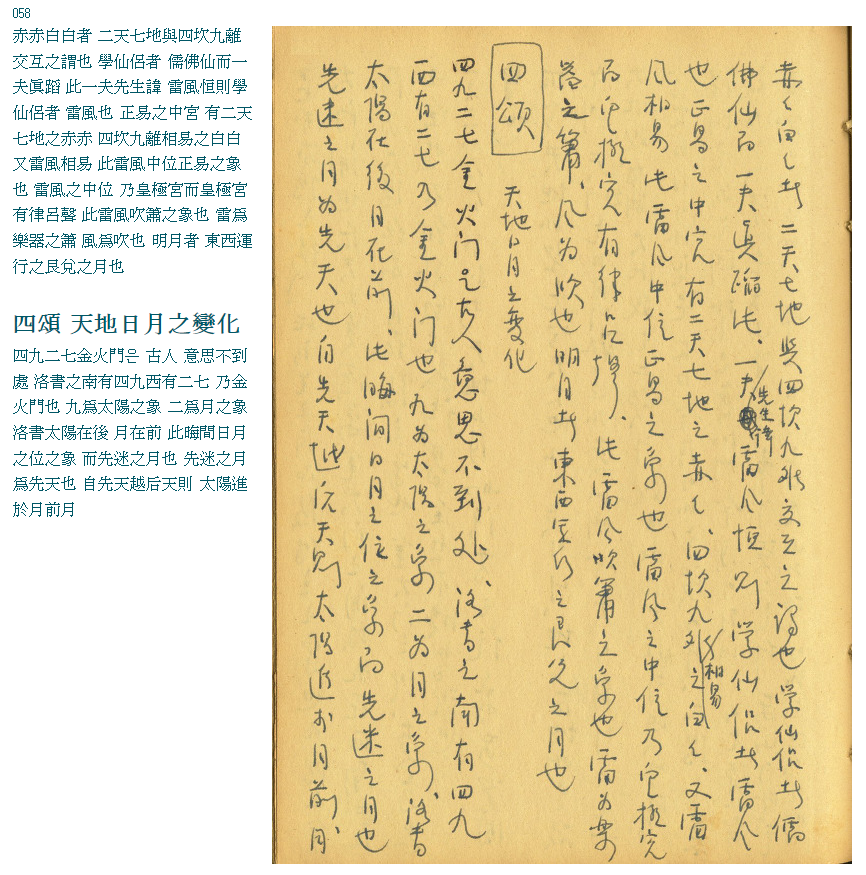 058
赤赤白白者 二天七地與四坎九離
交互之謂也 學仙侶者 儒佛仙而一
夫眞蹈 此一夫先生諱 雷風恒則學
仙侶者 雷風也 正易之中宮 有二天
七地之赤赤 四坎九離相易之白白
又雷風相易 此雷風中位正易之象
也 雷風之中位 乃皇極宮而皇極宮
有律呂聲 此雷風吹簫之象也 雷爲
樂器之簫 風爲吹也 明月者 東西運
行之艮兌之月也
四頌 天地日月之變化
四九二七金火門은 古人 意思不到
處 洛書之南有四九西有二七 乃金
火門也 九爲太陽之象 二爲月之象
洛書太陽在後 月在前 此晦間日月
之位之象 而先迷之月也 先迷之月
爲先天也 自先天越后天則 太陽進
於月前月
赤々白々者 二天七地與四坎九離交互之謂也 學仙侶者 儒
佛仙而一夫眞蹈此、一夫先生諱雷風恒則 學仙侶者 雷風
也 正易之中宮有二天七地之赤々、四坎九離相易之白々、又雷
風相易 此雷風中位正易之象也 雷風之中位乃皇極宮
而皇極宮有律呂聲、此雷風吹簫之象也 雷为樂
器之簫、风为吹也 明月者 東西運行之艮兌之月也
四頌 天地日月之变化
四九二七金火门은 古人意思不到处、洛書之南有四九
西有二七 乃金火门也 九为太陽之象 二为月之象、洛書
太陽在後 月在前、此晦间日月之位之象而先迷之月也
先迷之月为先天也 自先天越后天則 太陽進於月前月、